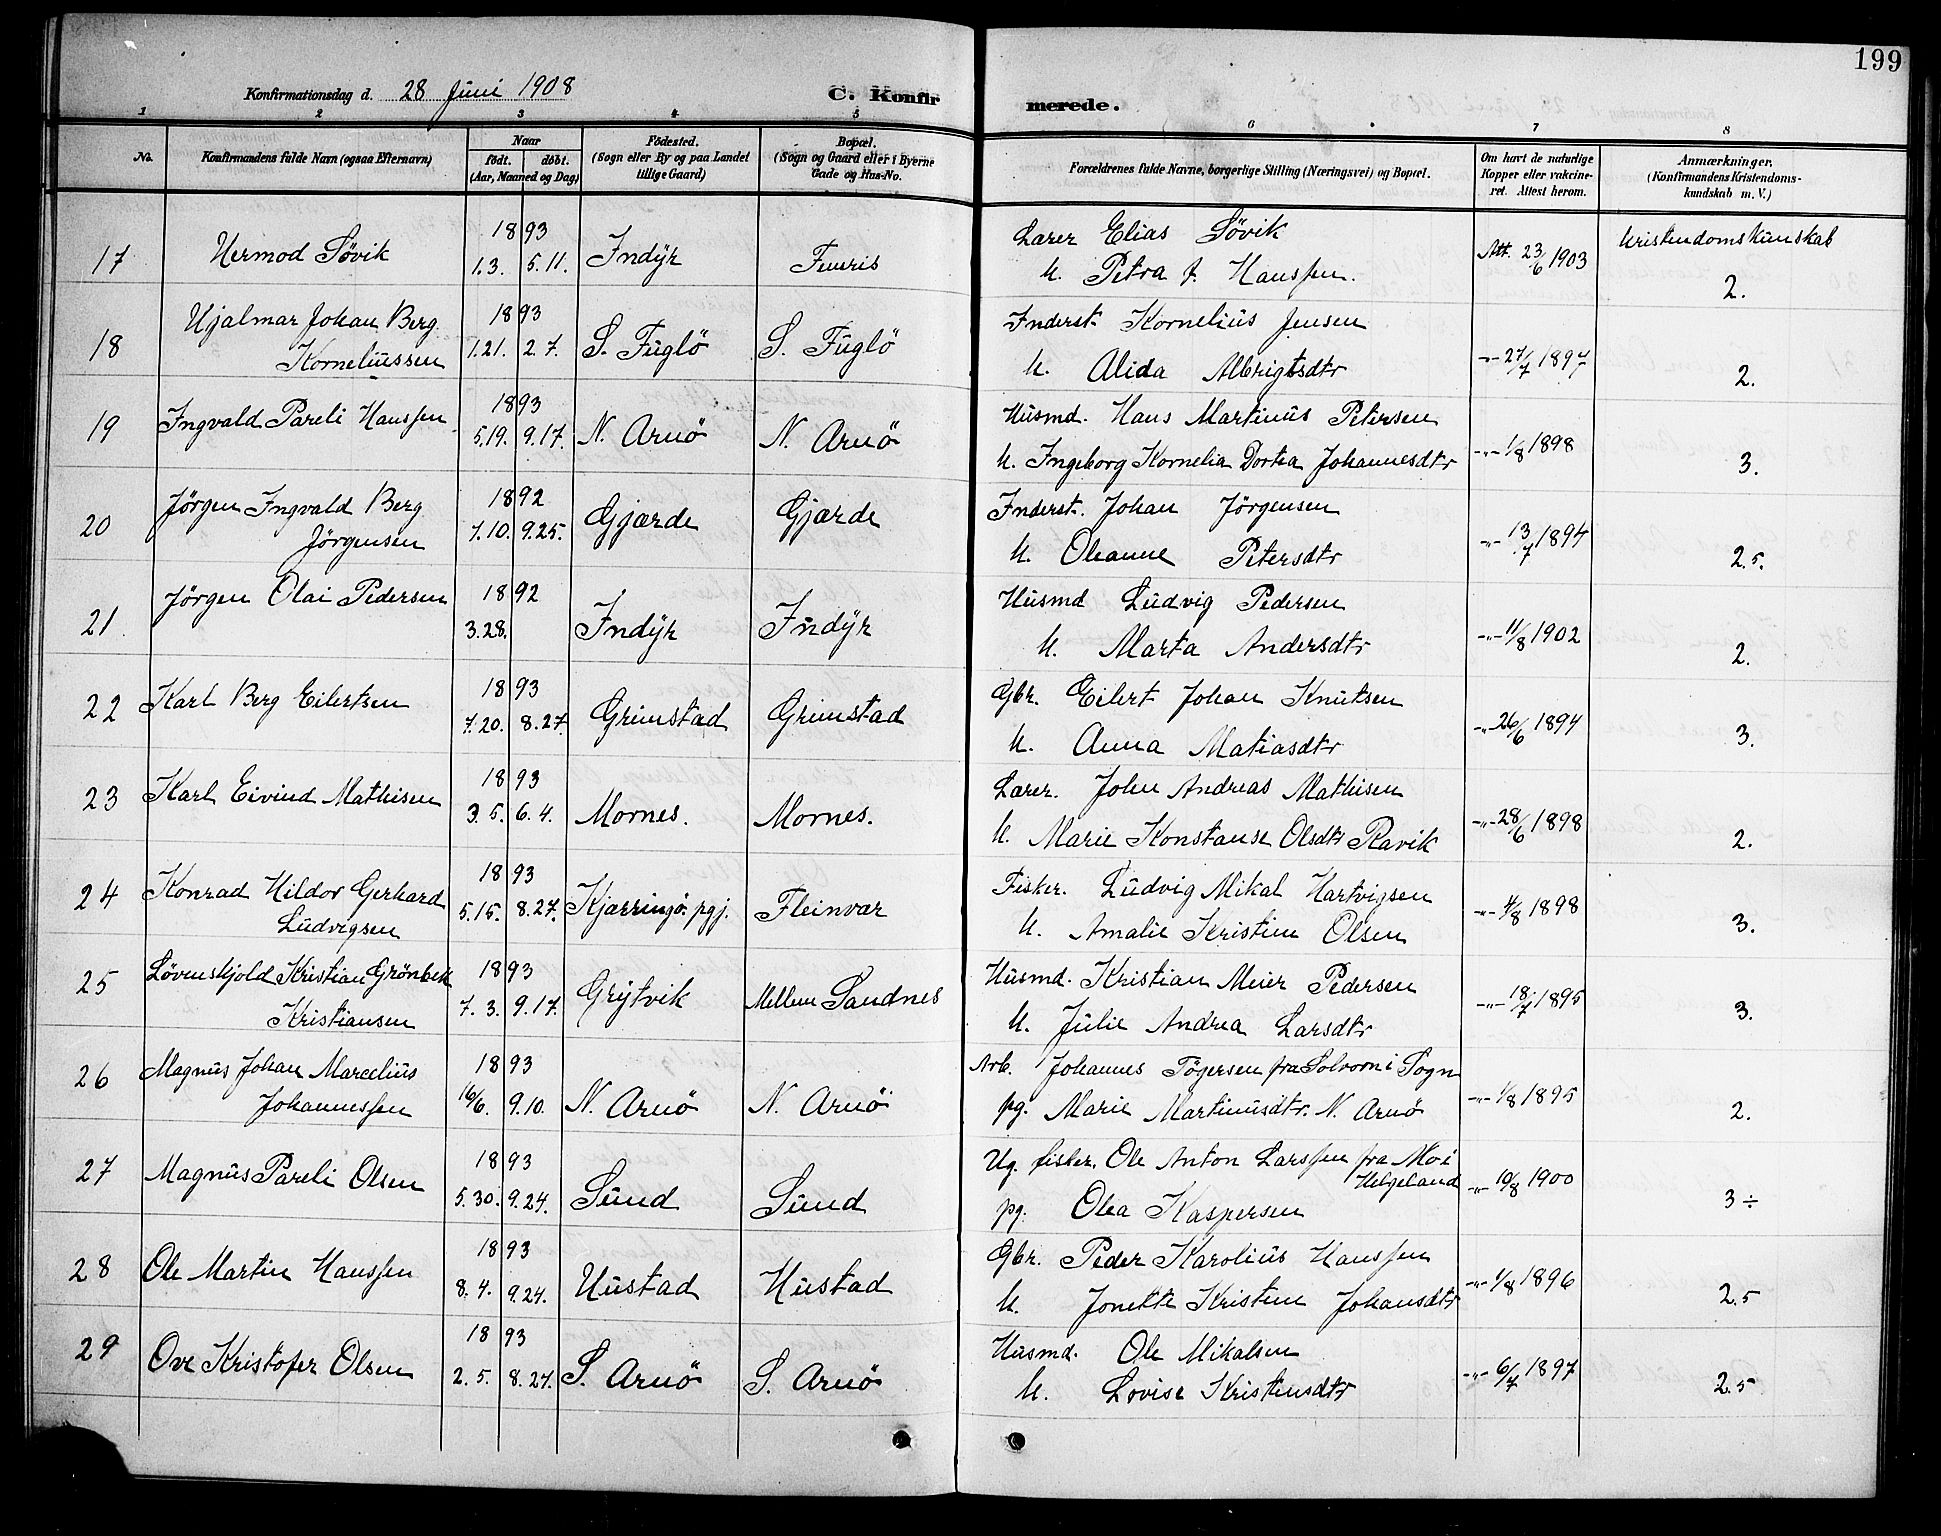 199
Konfirmationsdag d. 28 Juni 1908
C. Konfirmerede.
1 2 3 4 5 6 7 8
No. | Konfirmandens fulde Navn (ogsaa Efternavn) | Naar födt. döbt. (Aar, Maaned og Dag) | Födested. (Sogn eller By og paa Landet tillige Gaard) | Bopæl. (Sogn og Gaard eller i Byerne Gade og Hus-No. | Forældrenes fulde Navne, borgerlige Stilling (Næringsvei) og Bopæl. | Om havt de naturlige Kopper eller vakcineret. Attest herom. | Anmærkninger. (Konfirmandens Kristendomskundskab m. V.)
17 Hermod Sövik | 1893 1.3. 5.11. | Indÿr | Fuuris | Lærer Elias Sövik
h. Petra f. Hanssen. | Att. 23/6 1903 | Kristendomskunskab 2.
18 Hjalmar Johan Berg Korneliussen | 1893 1.21. 2.7. | S. Fuglö | S. Fuglö | Inderst. Kornelius Jensen
h. Alida Albrigtsdtr | -"- 27/7 1897 | 2.
19 Ingvald Pareli Hanssen | 1893 5.19. 9.17. | N. Arnö | N. Arnö | Husmd. Hans Martinus Petersen
h. Ingeborg Kornelia Dortea Johannesdtr | -"- 1/8 1898 | 3.
20 Jörgen Ingvald Berg Jörgensen | 1892 7.10. 9.25. | Gjærde | Gjærde | Inderst. Johan Jörgensen
h. Oleanne Petersdtr | -"- 13/7 1894 | 2.5.
21. Jörgen Olai Pedersen | 1892 3.28. | Indÿr | Indÿr | Husmd Ludvig Pedersen
h. Marta Andersdtr | -"- 11/8 1902 | 2.
22 Karl Berg Eilertsen | 1893 7.20. 8.27. | Grimstad | Grimstad | Gbr. Eilert Johan Knutsen
h. Anna Matiasdtr | -"- 26/6 1894 | 3.
23 Karl Eivind Mathisen | 1893 3.5. 6.4. | Mornes. | Mornes. | Lærer. John Andreas Mathisen
h. Marie Konstanse Olsdtr Ravik | -"- 28/6 1898 | 2.
24 Konrad Hildor Gerhard Ludvigsen | 1893 5.15. 8.27. | Kjærringö. pgj. | Fleinvær | Fisker. Ludvig Mikal Hartvigsen
h. Amalie Kristine Olsen | -"- 4/8 1898 | 3.
25 Lövenskjold Kristian Grönbek Kristiansen | 1893 7.3. 9.17. | Grÿtvik | Mellem Sandnes | Husmd. Kristian Meier Pedersen
h. Julie Andrea Larsdtr | -"- 18/7 1895 | 3.
26 Magnus Johan Marcelius Johannessen | 1893 16/6. 9.10. | N. Arnö | N. Arnö | Arb. Johannes Tögersen fra Solvorn i Sogn
pg. Marie Martinusdtr. N. Arnö | -"- 1/8 1895 | 2.
27 Magnus Pareli Olsen | 1893 5.30. 9.24. | Sund | Sund | Ug. fisker. Ole Anton Larssen fra Mo i Helgeland
pg. Olea Kaspersen | -"- 10/8 1900 | 3 ÷
28 Ole Martin Hanssen | 1893 8.4. 9.24. | Hustad | Hustad | Gbr. Peder Karolius Hanssen
h. Jonette Kristine Johansdtr | -"- 1/8 1896 | 2.5
29 Ove Kristofer Olsen | 1893 2.5. 8.27. | S. Arnö | S. Arnö | Husmd. Ole Mikalsen
h. Lovise Kristensdtr | -"- 6/7 1897 | 2.5